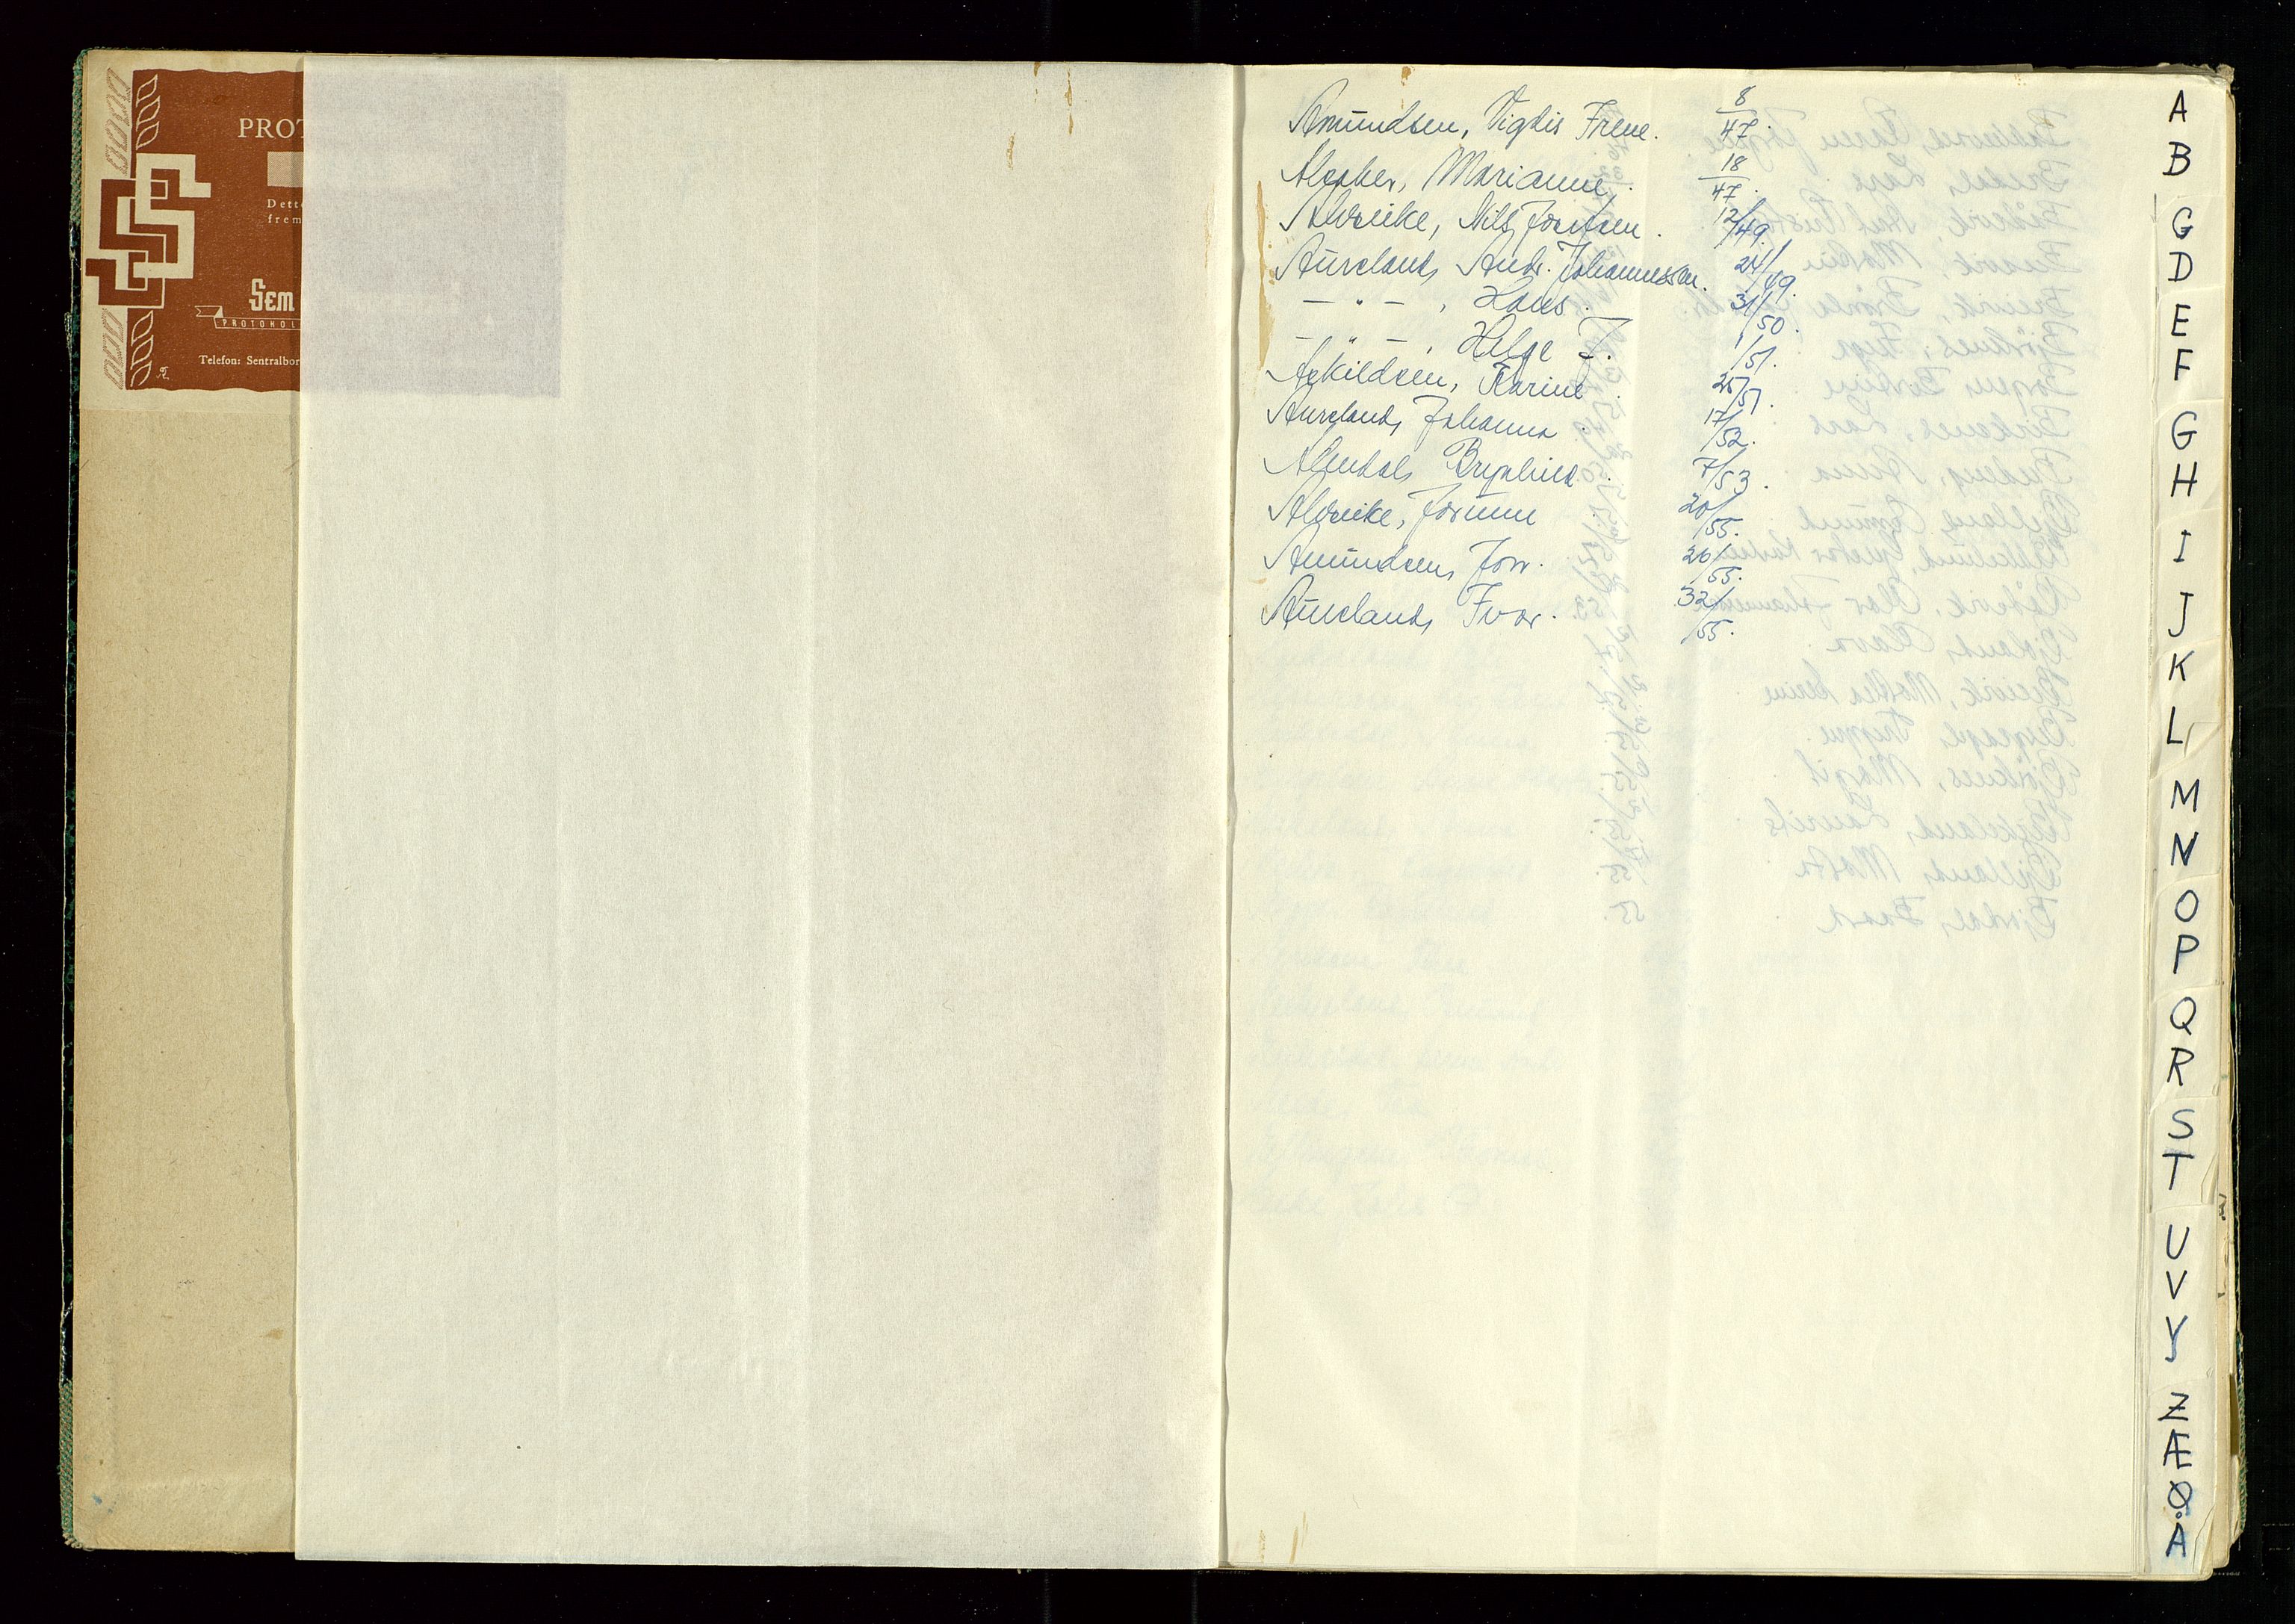 PROT
Dette
frem
SEM
PROTOKOL
Telefon: Sentralbor
Amundsen, Vigdis Irene. 8/47.
Marianne. 18/47.
Alvseike, Nils Josefsen. 12/49.
Aureland, Andr. Johannessen. 24/49.
— " — , Hans. 31/50.
— " — , Helge J. 1/51.
Askildsen, Karine. 25/51.
Aureland, Johanna. 17/52.
Brynhild. 7/53.
Alvseike, Jorunn 20/55.
Amundsen, Jon. 26/55.
Aureland, Ivar. 32/55.
A
B
G
D
E
F
G
H
I
J
K
L
M
N
O
P
Q
R
S
T
U
V
Y
Z
Æ
Ø
Å